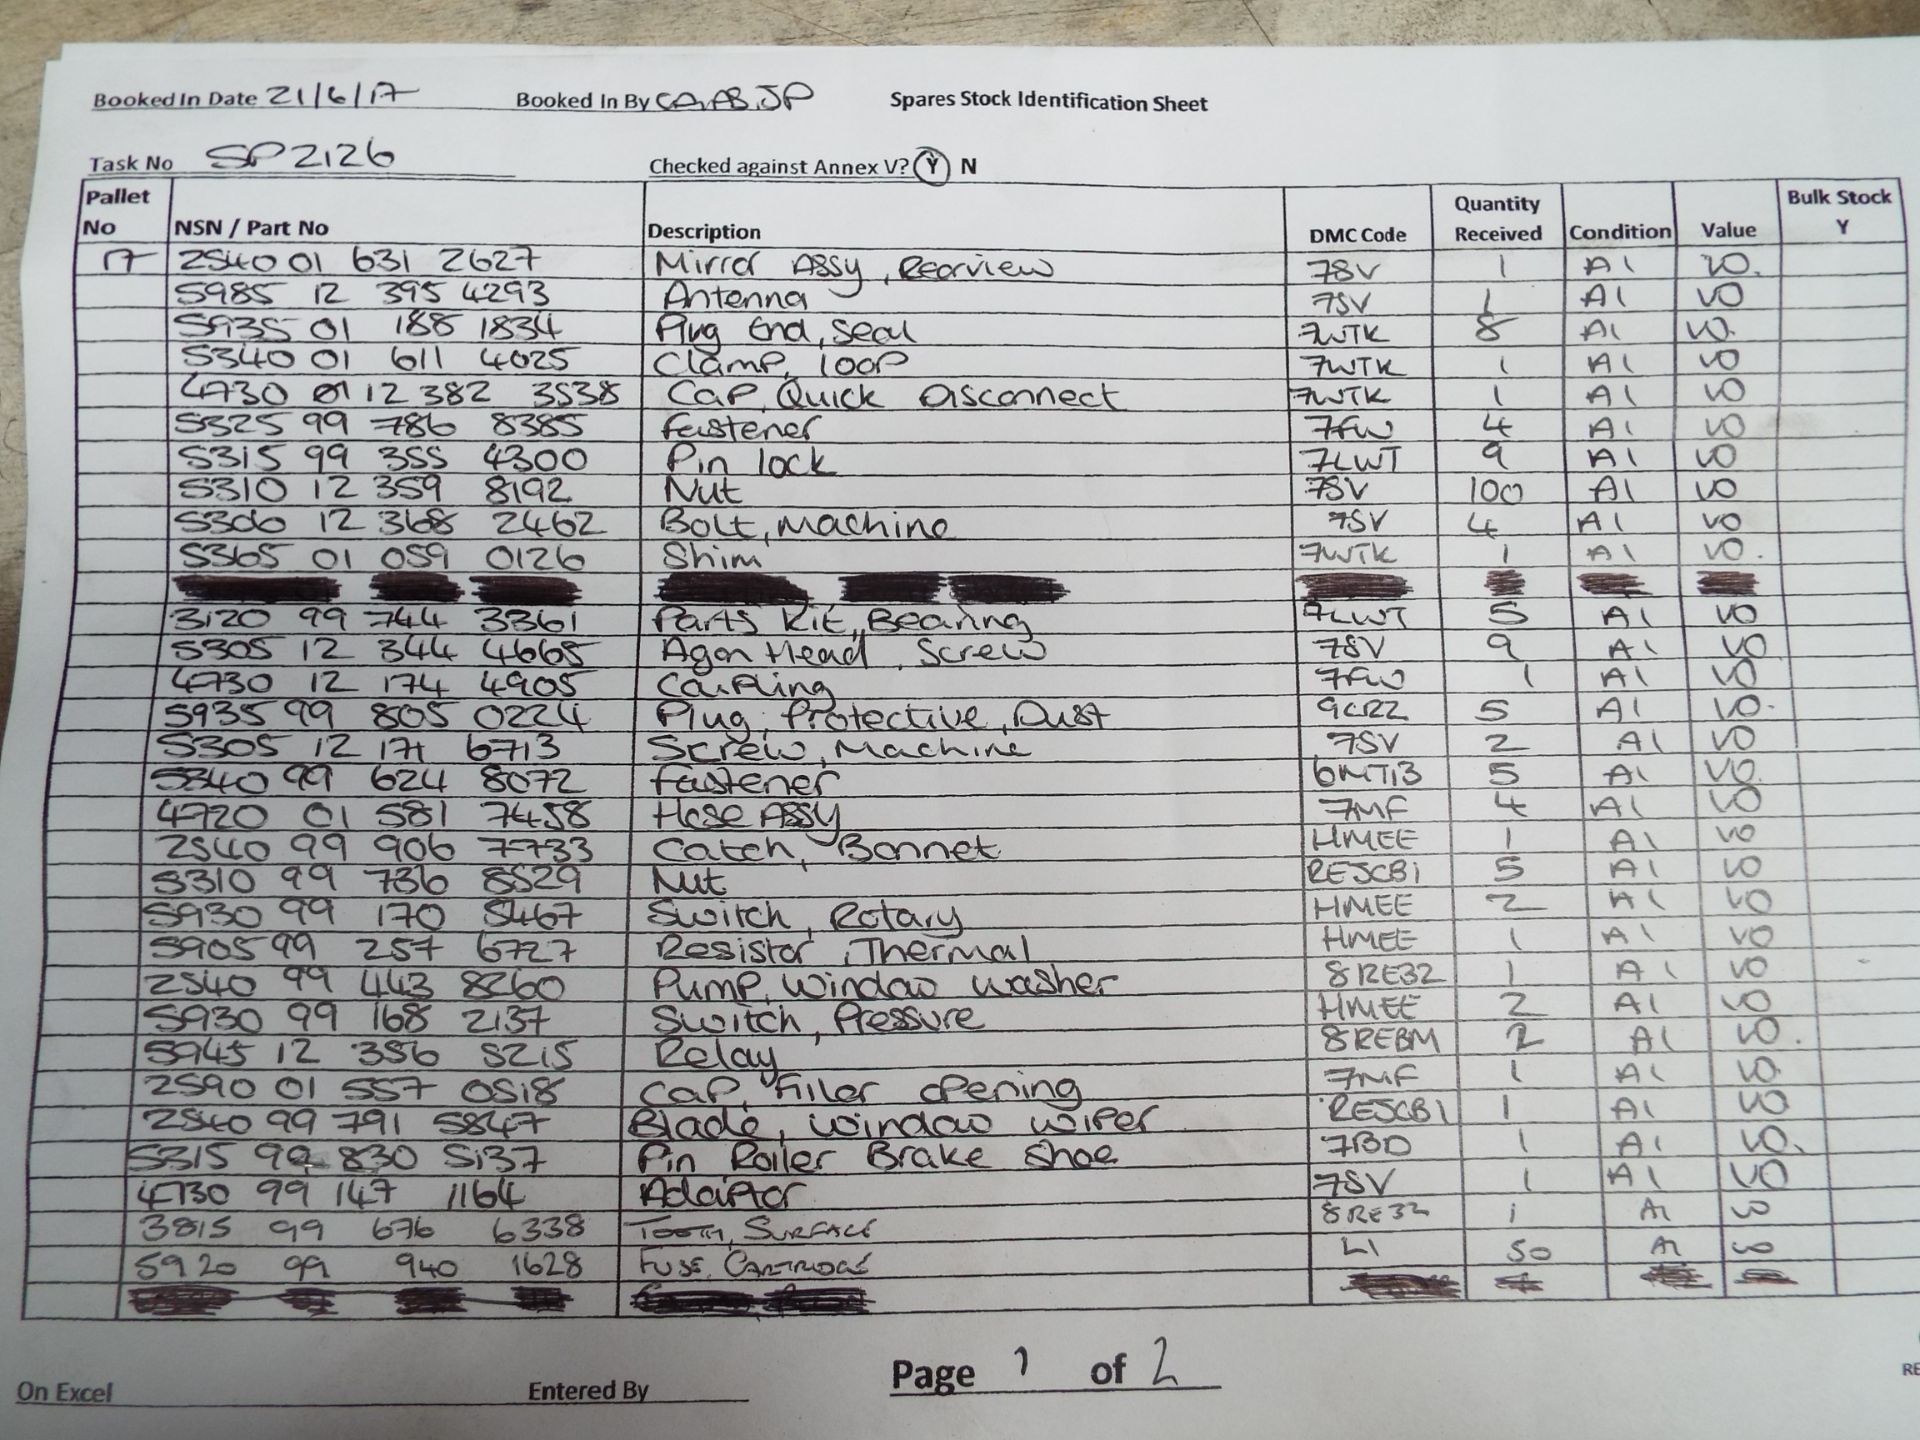 Booked In Date 21/6/17 Booked In By CA,AB,JP Spares Stock Identification Sheet
Task No SP2126 Checked against Annex V? Y N
Pallet No NSN / Part No Description DMC Code Quantity Received Condition Value Bulk Stock Y
17 2540 01 631 2627 Mirror Assy, Rearview 7SV 1 A1 VO.
5985 12 395 4293 Antenna 7SV 1 A1 VO
5935 01 188 1834 Plug End, Seal 7WTK 8 A1 VO.
5340 01 611 4025 Clamp, loop 7WTK 1 A1 VO
4730 12 382 3538 Cap, Quick Disconnect 7WTK 1 A1 VO
5325 99 786 8385 Fastener 7FW 4 A1 VO
5315 99 355 4300 Pin lock 7LWT 9 A1 VO
5310 12 359 8192 Nut 7SV 100 A1 VO
5306 12 368 2462 Bolt, Machine 7SV 4 A1 VO
5365 01 059 0126 Shim 7WTK 1 A1 VO.
3120 99 744 3361 Parts Kit, Bearing 7LWT 5 A1 VO
5305 12 344 4665 Agon Head, Screw 7SV 9 A1 VO
4730 12 174 4905 Coupling 7FW 1 A1 VO
5935 99 805 0224 Plug, Protective, Dust 9CR2 5 A1 VO.
5305 12 171 6713 Screw, Machine 7SV 2 A1 VO
5340 99 624 8072 Fastener 6MT13 5 A1 VO.
4720 01 581 7458 Hose Assy 7MF 4 A1 VO
2540 99 906 7733 Catch, Bonnet HMEE 1 A1 VO
5310 99 736 8529 Nut REJCB1 5 A1 VO
5930 99 170 5467 Switch, Rotary HMEE 2 A1 VO
5905 99 257 6727 Resistor, Thermal HMEE 1 A1 VO
2540 99 443 8260 Pump, Window washer 8RE32 1 A1 VO
5930 99 168 2137 Switch, Pressure HMEE 2 A1 VO
5945 12 356 5215 Relay 8REBM 2 A1 VO.
2590 01 557 0518 Cap, Filer opening 7MF 1 A1 VO
2540 99 791 5847 Blade, Window wiper REJCB1 1 A1 VO
5315 99 830 5137 Pin Roller Brake Shoe 7BD 1 A1 VO.
4730 99 147 1164 Adaptor 7SV 1 A1 VO
3815 99 676 6338 Tooth, Surface 8RE32 1 A1 VO
5920 99 940 1628 Fuse, Cartridge L1 50 A1 VO
On Excel Entered By Page 1 of 2
RE